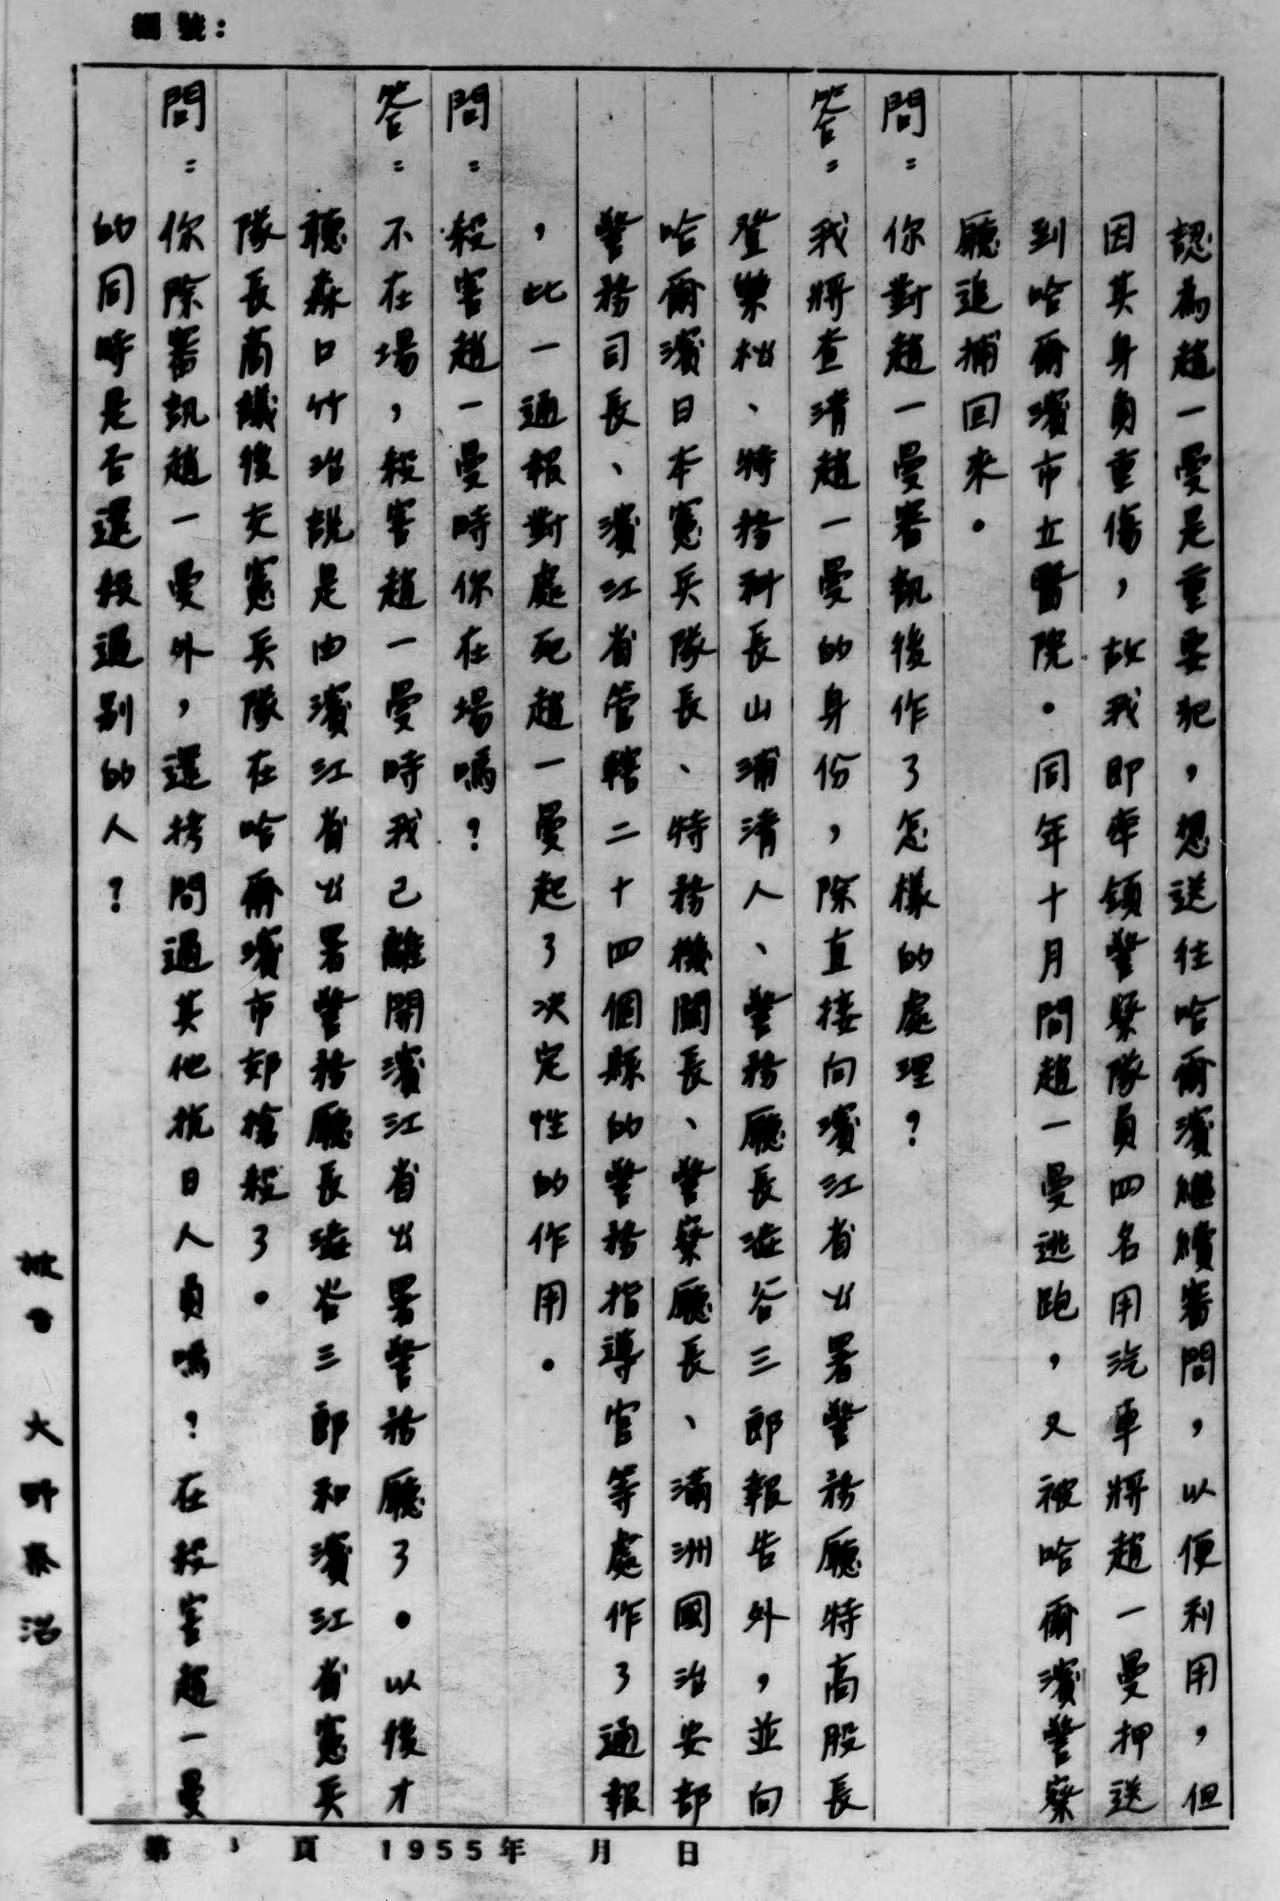 編號:
認為趙一曼是重要犯，想送往哈爾濱繼續審問，以便利用，但
因其身負重傷，故我即率領警察隊員四名用汽車將趙一曼押送
到哈爾濱市立醫院。同年十月間趙一曼逃跑，又被哈爾濱警察
廳追捕回來。
問：你對趙一曼審訊後作了怎樣的處理？
答：我將查清趙一曼的身份，除直接向濱江省公署警務廳特高股長
登樂松、特務科長山浦清人、警務廳長澁谷三郎報告外，並向
哈爾濱日本憲兵隊長、特務機關長、警察廳長、滿洲國治安部
警務司長、濱江省管轄二十四個縣的警務指導官等處作了通報
，此一通報對處死趙一曼起了決定性的作用。
問：殺害趙一曼時你在場嗎？
答：不在場，殺害趙一曼時我已離開濱江省公署警務廳了。以後才
聽森口竹治說是由濱江省公署警務廳長澁谷三郎和濱江省憲兵
隊長商議後交憲兵隊在哈爾濱市郊槍殺了。
問：你除審訊趙一曼外，還拷問過其他抗日人員嗎？在殺害趙一曼
的同時是否還殺過別的人？
被告 大野泰治
第 頁 1955年 月 日